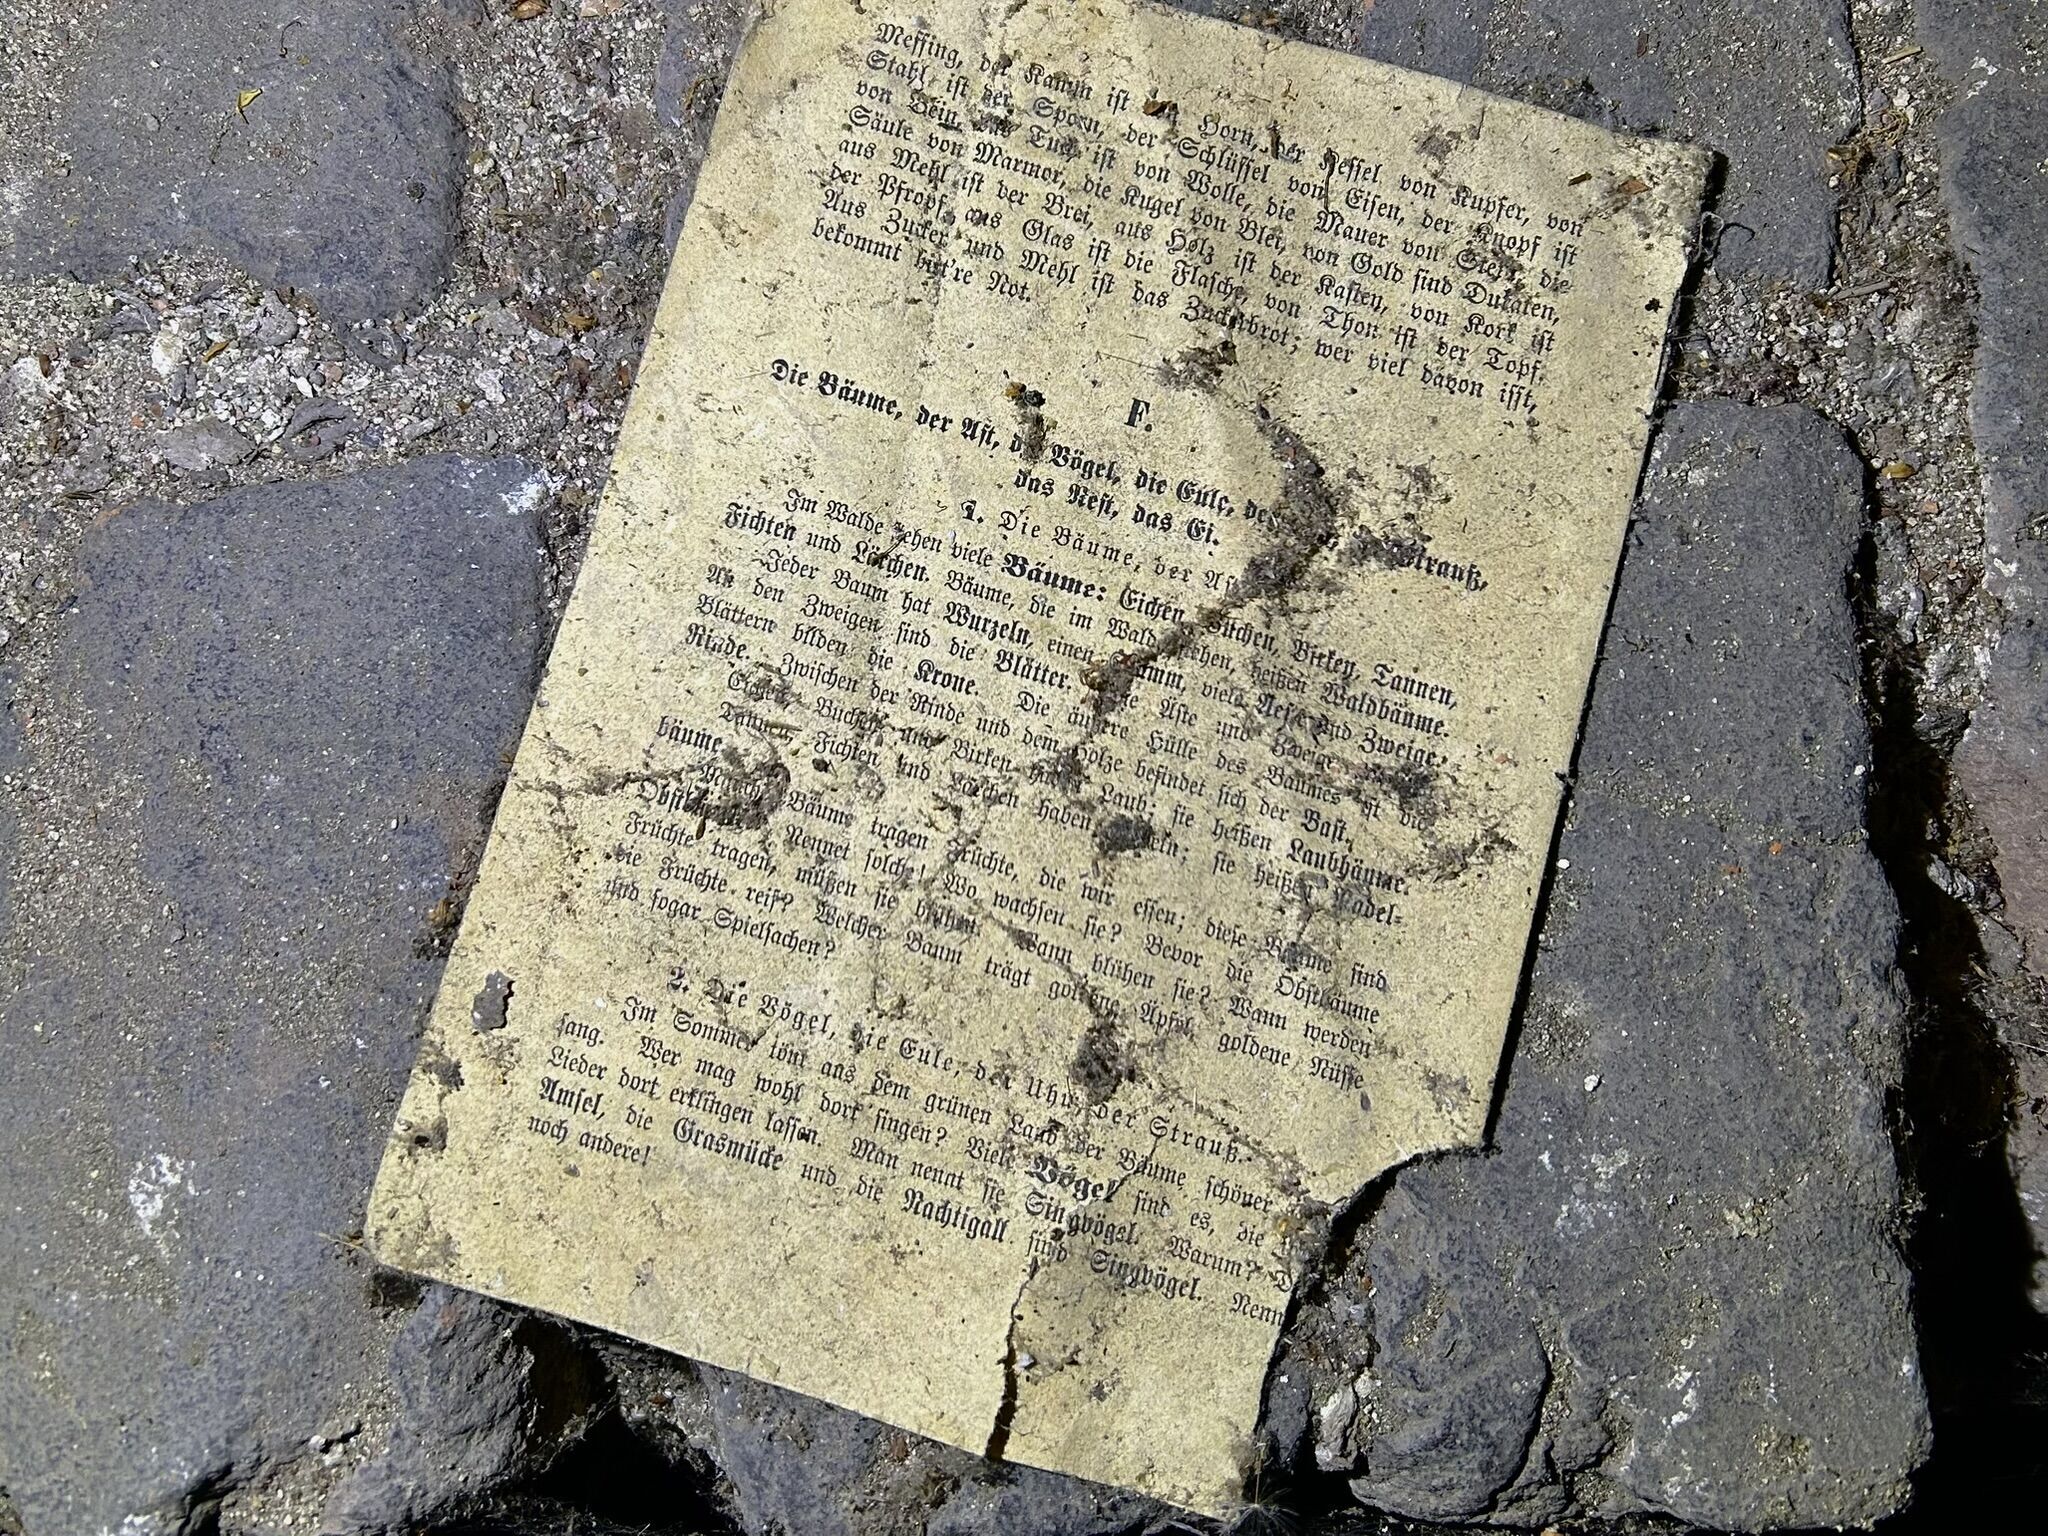 Messing, der Kamm ist von Horn, der Kessel von Kupfer, von
Stahl ist der Sporn, der Schlüssel von Eisen, der Knopf ist
von Bein, das Tuch ist von Wolle, die Mauer von Stein, die
Säule von Marmor, die Kugel von Blei, von Gold sind Dukaten,
aus Mehl ist der Brei, aus Holz ist der Kasten, von Kork ist
der Pfropf, aus Glas ist die Flasche, von Thon ist der Topf.
Aus Zucker und Mehl ist das Zuckerbrot; wer viel davon isst,
bekommt bitt're Not.
F.
Die Bäume, der Ast, die Vögel, die Eule, der Strauß,
das Nest, das Ei.
1. Die Bäume, der Ast
Im Walde stehen viele Bäume: Eichen, Buchen, Birken, Tannen,
Fichten und Lärchen. Bäume, die im Wald stehen, heißen Waldbäume.
Jeder Baum hat Wurzeln, einen Stamm, viele Aeste und Zweige.
An den Zweigen sind die Blätter. Die Äste und Zweige
Blättern bilden die Krone. Die äußere Hülle des Baumes ist die
Rinde. Zwischen der Rinde und dem Holze befindet sich der Bast.
Eichen, Buchen und Birken Laub; sie heißen Laubbäume.
Tannen, Fichten und Lärchen haben Nadeln; sie heißen Nadel-
bäume.
Manche Bäume tragen Früchte, die wir essen; diese Bäume sind
Obstbäume. Nennet solche! Wo wachsen sie? Bevor die Obstbäume
Früchte tragen, müssen sie blühen. Wann blühen sie? Wann werden
die Früchte reif? Welcher Baum trägt goldene Äpfel, goldene Nüsse
und sogar Spielsachen?
2. Die Vögel, die Eule, der Uhu, der Strauß.
Im Sommer tönt aus dem grünen Laub der Bäume schöner
sang. Wer mag wohl dort singen? Viele Vögel sind es, die
Lieder dort erklingen lassen. Man nennt sie Singvögel. Warum? D
Amsel, die Grasmücke und die Nachtigall sind Singvögel. Nenn
noch andere!